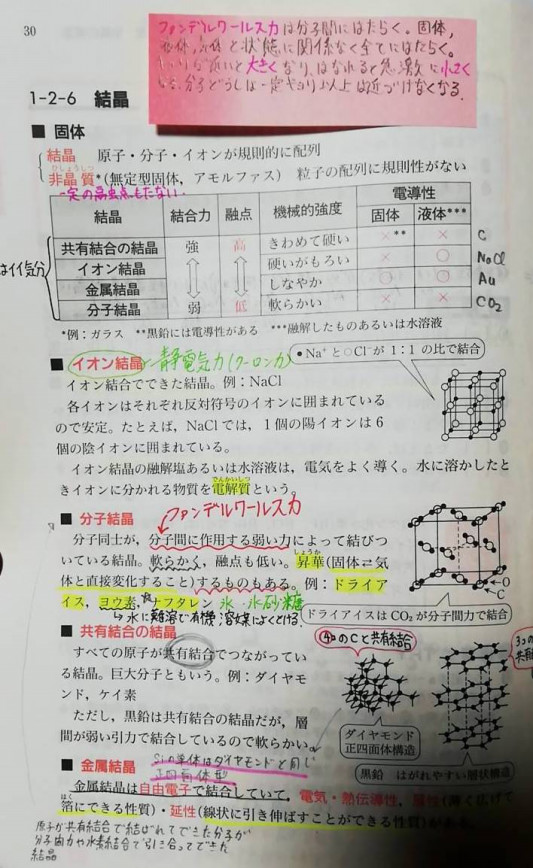 30
ファンデルワールス力は分子間にはたらく。固体,
液体,気体と状態に関係なく全てにはたらく。
大きくなり,はなれると急激に小さく
分子どうしは一定
以上は近づけなくなる.
1-2-6 結晶
■ 固体
結晶 原子・分子・イオンが規則的に配列
ひしょうしつ
非晶質*(無定型固体,アモルファス) 粒子の配列に規則性がない
一定の融点をもたない.
結晶 結合力 融点 機械的強度 電導性
固体 液体***
共有結合の結晶 強 高 きわめて硬い ×** × C
イオン結晶 硬いがもろい × ○ NaCl
金属結晶 しなやか ○ ○ Au
分子結晶 弱 低 軟らかい × × CO2
はイイ気分
*例:ガラス **黒鉛には電導性がある ***融解したものあるいは水溶液
■ イオン結晶 静電気力(クーロン力)
●Na⁺と○Cl⁻が1:1の比で結合
イオン結合でできた結晶。例:NaCl
各イオンはそれぞれ反対符号のイオンに囲まれている
ので安定。たとえば,NaClでは,1個の陽イオンは6
個の陰イオンに囲まれている。
イオン結晶の融解塩あるいは水溶液は,電気をよく導く。水に溶かしたと
でんかいしつ
きイオンに分かれる物質を電解質という。
ファンデルワールス力
■ 分子結晶
分子同士が,分子間に作用する弱い力によって結びつ
しょうか
いている結晶。軟らかく,融点も低い。昇華(固体⇌気
体と直接変化すること)するものもある。例:ドライア
イス,ヨウ素,ナフタレン 氷・氷砂糖
→水に難溶で有機溶媒によくとける
O
C
ドライアイスはCO₂が分子間力で結合
■ 共有結合の結晶
すべての原子が共有結合でつながってい
る結晶。巨大分子ともいう。例:ダイヤモ
ンド,ケイ素
ただし,黒鉛は共有結合の結晶だが,層
間が弱い引力で結合しているので軟らかい。
Siの単体はダイヤモンドと同じ
正四面体型
4つのCと共有結合
3つの
共有
ダイヤモンド
正四面体構造
黒鉛 はがれやすい層状構造
■ 金属結晶
金属結晶は自由電子で結合していて,電気・熱伝導性,展性(薄く広げて
はく
箔にできる性質)・延性(線状に引き伸ばすことができる性質)がある。
原子が共有結合で結ばれてできた分子が
分子間力や水素結合で引き合ってできた
結晶